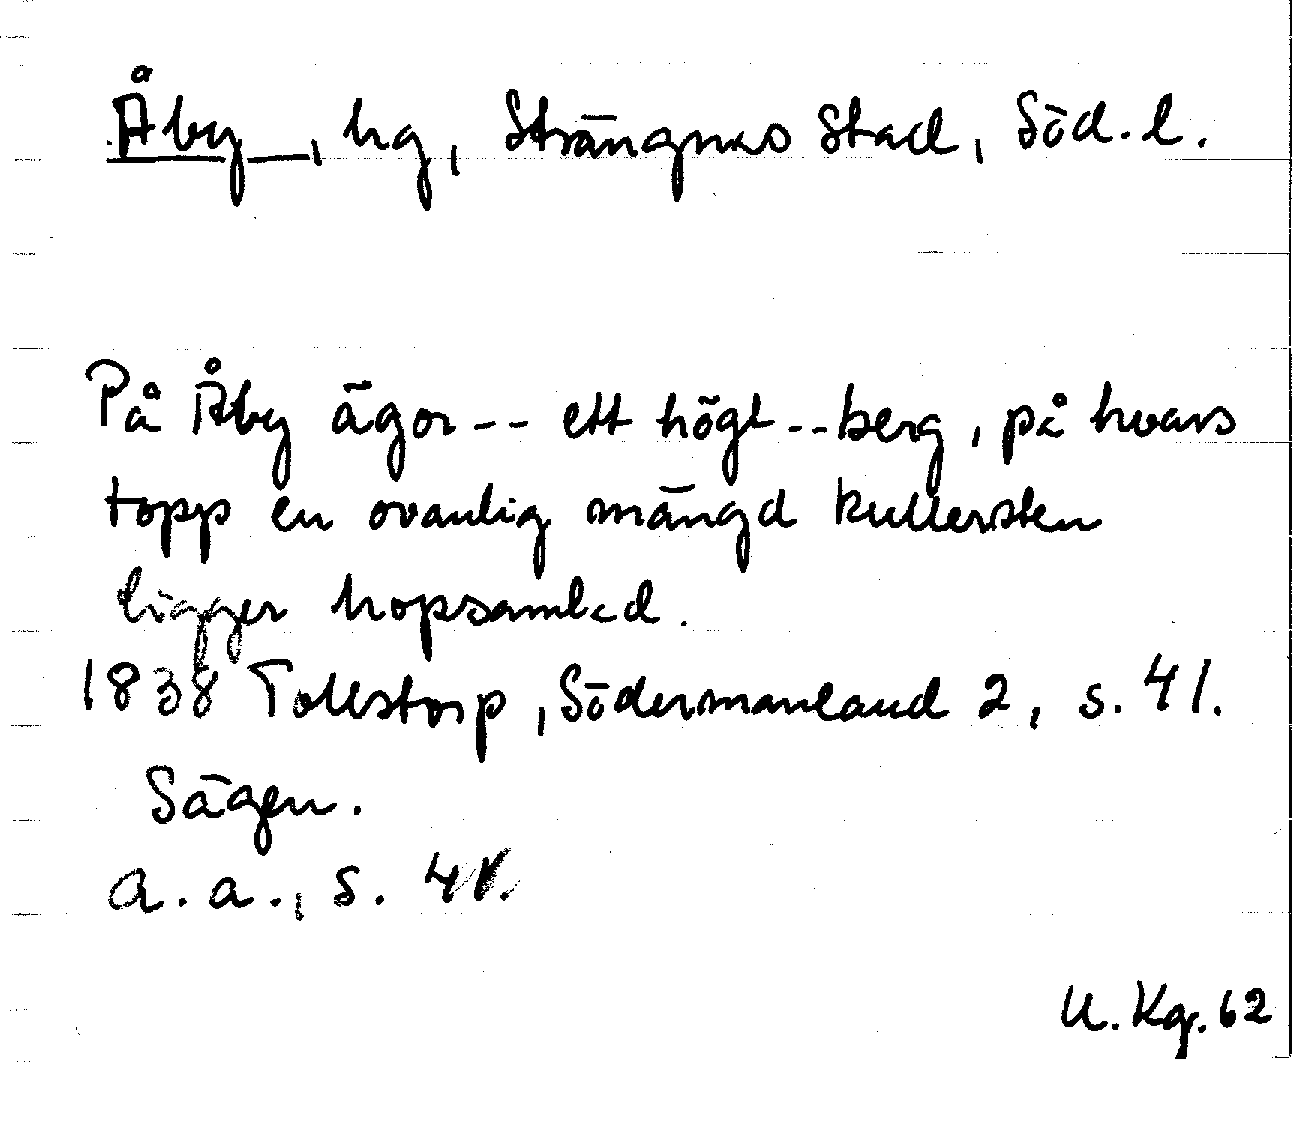 Åby, hg, Strängnäs Stad, Söd. l.
På Åby ägor -- ett högt -- berg, på hvars
topp en ovanlig mängd kullersten
ligger hopsamlad.
1838 Tollstorp, Södermanland 2, s. 41.
Sägen.
a. a., s. 41.
U. Kg. 62